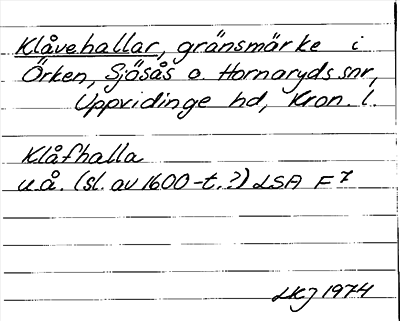 Klåvehallar, gränsmärke i
Örken, Sjösås o. Hornaryds snr,
Uppvidinge hd, Kron. l.
Klåfhalla
u.å. (sl. av 1600-t.?) LSA F 7
LKJ 1974